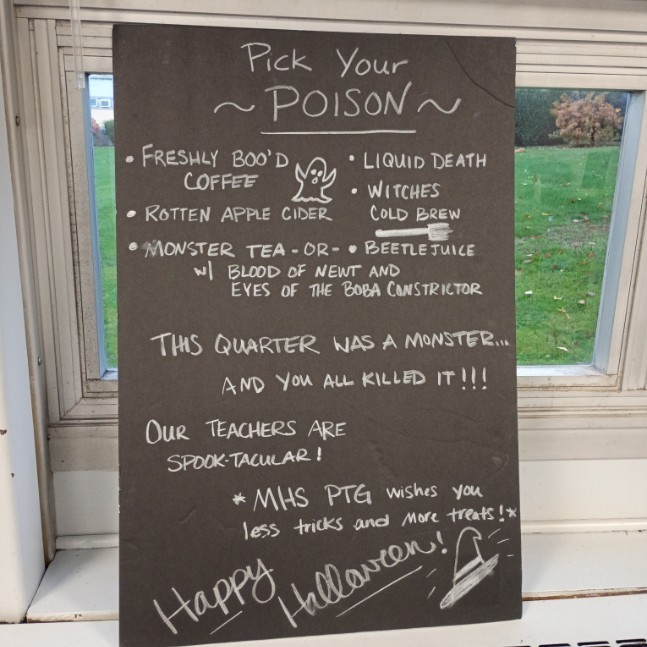 Pick Your
~ POISON ~
• FRESHLY BOO'D
COFFEE
• ROTTEN APPLE CIDER
• LIQUID DEATH
• WITCHES
COLD BREW
• MONSTER TEA -OR- • BEETLEJUICE
w/ BLOOD OF NEWT AND
EYES OF THE BOBA CONSTRICTOR
THIS QUARTER WAS A MONSTER...
AND YOU ALL KILLED IT!!!
OUR TEACHERS ARE
SPOOK-TACULAR!
*MHS PTG wishes you
less tricks and more treats!*
Happy Halloween!